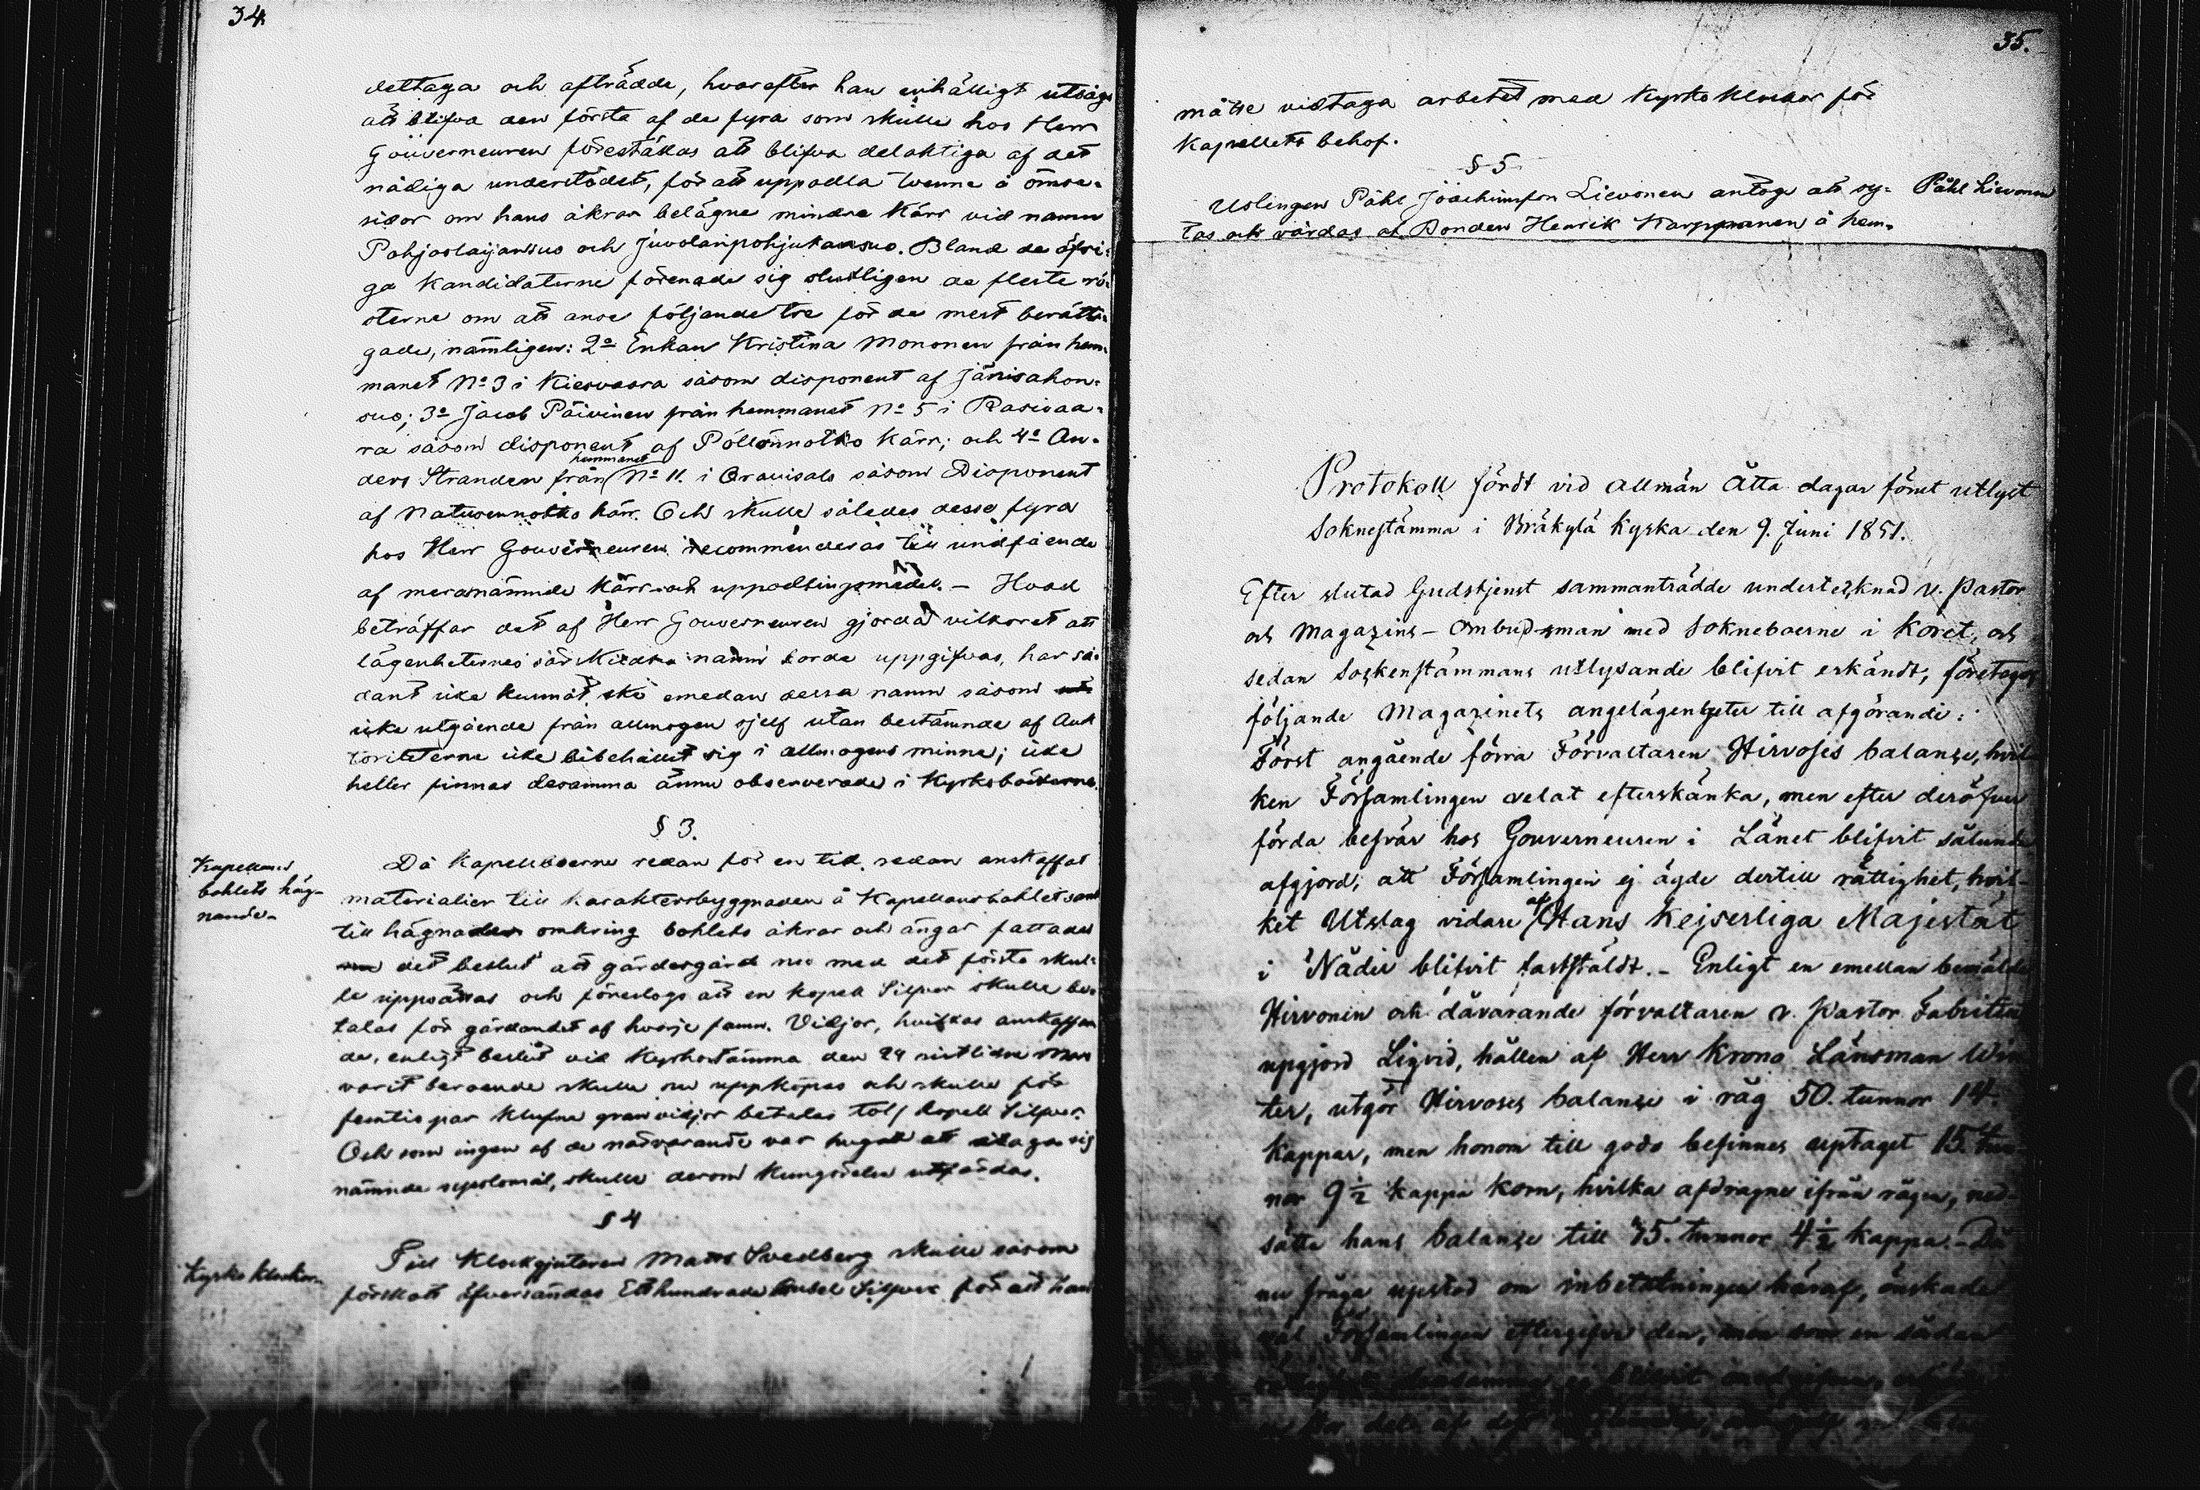 34.
dettaga och afträdde, hvarefter han enhälligt utsågs
att blifva den första af de fyra som skulle hos Herr
Gouverneuren föreställas att blifva delaktiga af det
nådiga understödet, för att uppodla tvenne å ömse-
sidor om hans åkrar belägne mindre Kärr vid namn
Pohjaslaijansuo och Juvolanpohjukansuo. Bland de öfri-
ga Kandidaterne förenade sig slutligen de fleste rö-
sterne om att anse följande tre för de mest berätti-
gade, nämligen: 2o Enkan Kristina Mononen från hem-
manet No 3 i Kiesvaara såsom disponent af Jänisahon-
suo; 3o Jacob Päivinen från hemmanet No 5 i Rasivaa-
ra såsom disponent af Pöllönnotko Kärr; och 4o An-
ders Stranden från hemmanet No 11. i Oravisalo såsom Disponent
af Natusennotko kärr. Och skulle således desse fyra
hos Herr Gouverneuren recommenderas till undfående
af meranämnde Kärr-och uppodlingsmedel. - Hvad
beträffar det af Herr Gouverneuren gjorda vilkoret att
lägenheternes särskilda namn borde uppgifvas, har så-
dant icke kunnat ske emedan dessa namn såsom
icke utgående från allmogen sjelf utan bestämde af Auk
toriteterne icke bibehållit sig i allmogens minne; icke
heller finnas desamma ännu observerade i Kyrkoböckerne.
§ 3.
Kapellans
bohlets häg-
nande.
Då Kapellboerne redan för en tid sedan anskaffat
materialier till karaktersbyggnaden å Kapellansbohlet samt
till hägnaden omkring bohlets åkrar och ängar fattades
det beslut att gärdesgård nu med det första skul-
le uppsättas och föreslogs att en kopek Silfver skulle be-
talas för gärdandet af hvarje famn. Vidjor, hvilkas anskaffan
de, enligt beslut vid Kyrkostämma den 24 sistlidne
varit beroende skulle nu uppköpas och skulle för
femtio par klufna granvidjor betalas tolf kopek Silfver.
Och som ingen af de närvarande var hugad att åtaga sig
nämnde upsloeål, skulle derom Kungörelse utfärdas.
§ 4
Kyrko klockor.
Till Klockgjutaren Matts Svedberg skulle såsom
förskott öfversändas Etthundrade Rubel Silfver för att han
35.
måtte vidtaga arbetet med Kyrko Klockor för
Kapellets behof.
§ 5
Uslingen Påhl Joachimsson Lievonen antogs att sy-
Påhl Lievonen
tas och vårdas af Bonden Henrik Karppanen å hem-
Protokoll fördt vid allmän Åtta dagar förut utlyst
Soknestämma i Bräkylä kyrka den 9. Juni 1851.
Efter slutad Gudstjenst sammanträdde undertecknad v. Pastor
och Magazins-Ombudsman med Sokneboerne i Koret, och
sedan Sockenstämmans utlysande blifvit erkändt, företogos
följande Magazinets angelägenheter till afgörande:
Först angående förra Förvaltaren Hirvoses balanse, hvil-
ken Församlingen velat efterskänka, men efter deröfver
förda besvär hos Gouverneuren i Länet blifvit sålunda
afgjord; att Församlingen ej ägde dertill rättighet, hvil-
ket Utslag vidare af Hans Kejserliga Majestät
i Nåder blifvit fastställdt. - Enligt en emellan bemälde
Hirvonen och dåvarande förvaltaren v. Pastor Fabritius
upgjord Liqvid, hållen af Herr Krono Länsman Win
ter, utgör Hirvoses balanse i råg 50. tunnor 14.
kappar, men honom till godo befinnes uptaget 15. tun-
nor 9 1/2 kappa korn, hvilka afdragne ifrån rågen, ned-
sätta hans balanse till 35. tunnor 4 1/2 kappa. - Då
nu fråga upstod om inbetalningen häraf, önskade
väl Församlingen eftergifva den, men som en sådan